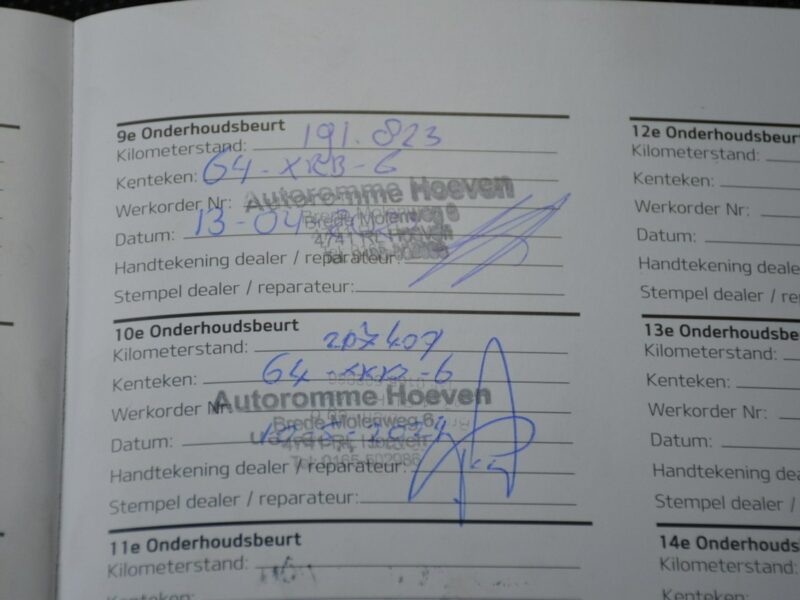 9e Onderhoudsbeurt
Kilometerstand: 191.823
Kenteken: 64-XRB-6
Werkorder Nr:
Autoromme Hoeven
Datum: 13-04
Brede Molenweg 6
4741 RL Hoeven
Handtekening dealer / reparateur:
Stempel dealer / reparateur:
10e Onderhoudsbeurt
Kilometerstand: 207407
Kenteken: 64
Werkorder Nr
Autoromme Hoeven
Brede Molenweg 6
Datum:
Handtekening dealer / reparateur:
Tel: 0165-502986
Stempel dealer / reparateur:
11e Onderhoudsbeurt
Kilometerstand:
Kenteken:
12e Onderhoudsbeur
Kilometerstand:
Kenteken:
Werkorder Nr:
Datum:
Handtekening deale
Stempel dealer / re
13e Onderhoudsbe
Kilometerstand:
Kenteken:
Werkorder Nr:
Datum:
Handtekening dea
Stempel dealer /
14e Onderhouds
Kilometerstand:
Kenteken: